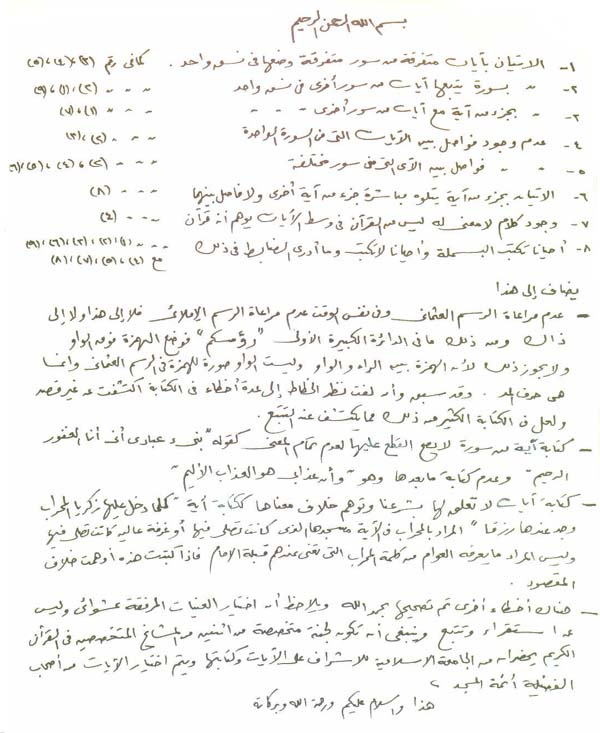 بسم الله الرحمن الرحيم
١- الاتيان بآيات متفرقة من سور متفرقة وضعها في نسق واحد . كما في رقم (٣)،(٤)،(٥)
٢- " بسورة يتبعها آيات من سور أخرى في نسق واحد " " " (٢)،(١)،(٩)
٣- " بجزء من آية مع آيات من سور أخرى " " " (١)،(٧)
٤- عدم وجود فواصل بين الآيات التي في السورة الواحدة " " " (٢)،(٣)
٥- " " فواصل بين الآي التي في سور مختلفة " " " (٣)،(٤)،(٥)،(٦)
٦- الاتيان بجزء من آية يتلوه مباشرة جزء من آية أخرى ولا فاصل بينهما " " " (٨)
٧- وجود كلام لا معنى له ليس من القرآن في وسط الآيات يوهم أنه قرآن " " " (٤)
٨- أحيانا تكتب البسملة وأحيانا لا تكتب وما أدري الضابط في ذلك " " " (١)،(٢)،(٣)،(٦)،(٩)
مع (٤)،(٥)،(٧)،(٨)
يضاف إلى هذا
- عدم مراعاة الرسم العثماني وفي نفس الوقت عدم مراعاة الرسم الإملائي فلا إلى هذا ولا إلى
ذاك ومن ذلك ما في الدائرة الكبيرة الأولى "رؤسكم" فوضع الهمزة فوق الواو
ولا يجوز ذلك لأن الهمزة بين الراء والواو وليست الواو صورة للهمزة في الرسم العثماني وانما
هي حرف المد . وقد سبق وأن لفت نظر الخطاط إلى عدة أخطاء في الكتابة اكتشفت عن غير قصد
ولعل في الكتابة الكثير من ذلك مما يكشف عند التتبع .
- كتابة آية من سورة لا يصح القطع عليها لعدم تمام المعنى كقوله "نبيء عبادي أني أنا الغفور
الرحيم" وعدم كتابة ما بعدها وهو "وأن عذابي هو العذاب الأليم"
- كتابة آيات لا تعلق لها بشرعنا وتوهم خلاف معناها ككتابة آية "كلما دخل عليها زكريا المحراب
وجد عندها رزقا" المراد بالمحراب في الآية مسجدها الذي كانت تصلي فيها أو غرفة عالية كانت تصلي فيها
وليس المراد ما يعرفه العوام من كلمة المحراب التي تعني عندهم قبلة الامام فاذا كتبت هذه أوهمت خلاف
المقصود .
- هناك أخطاء أخرى تم تصحيحها بحمد الله ويلاحظ أن اختيار العينات المرفقة عشوائي وليس
عن استقراء وتتبع وينبغي أن تكون لجنة متخصصة من اثنين من المشايخ المتخصصين في القرآن
الكريم يحضران من الجامعة الاسلامية للاشراف على الآيات وكتابتها ويتم اختيار الآيات من أصحاب
الفضيلة أئمة المسجد ،
هذا والسلام عليكم ورحمة الله وبركاته